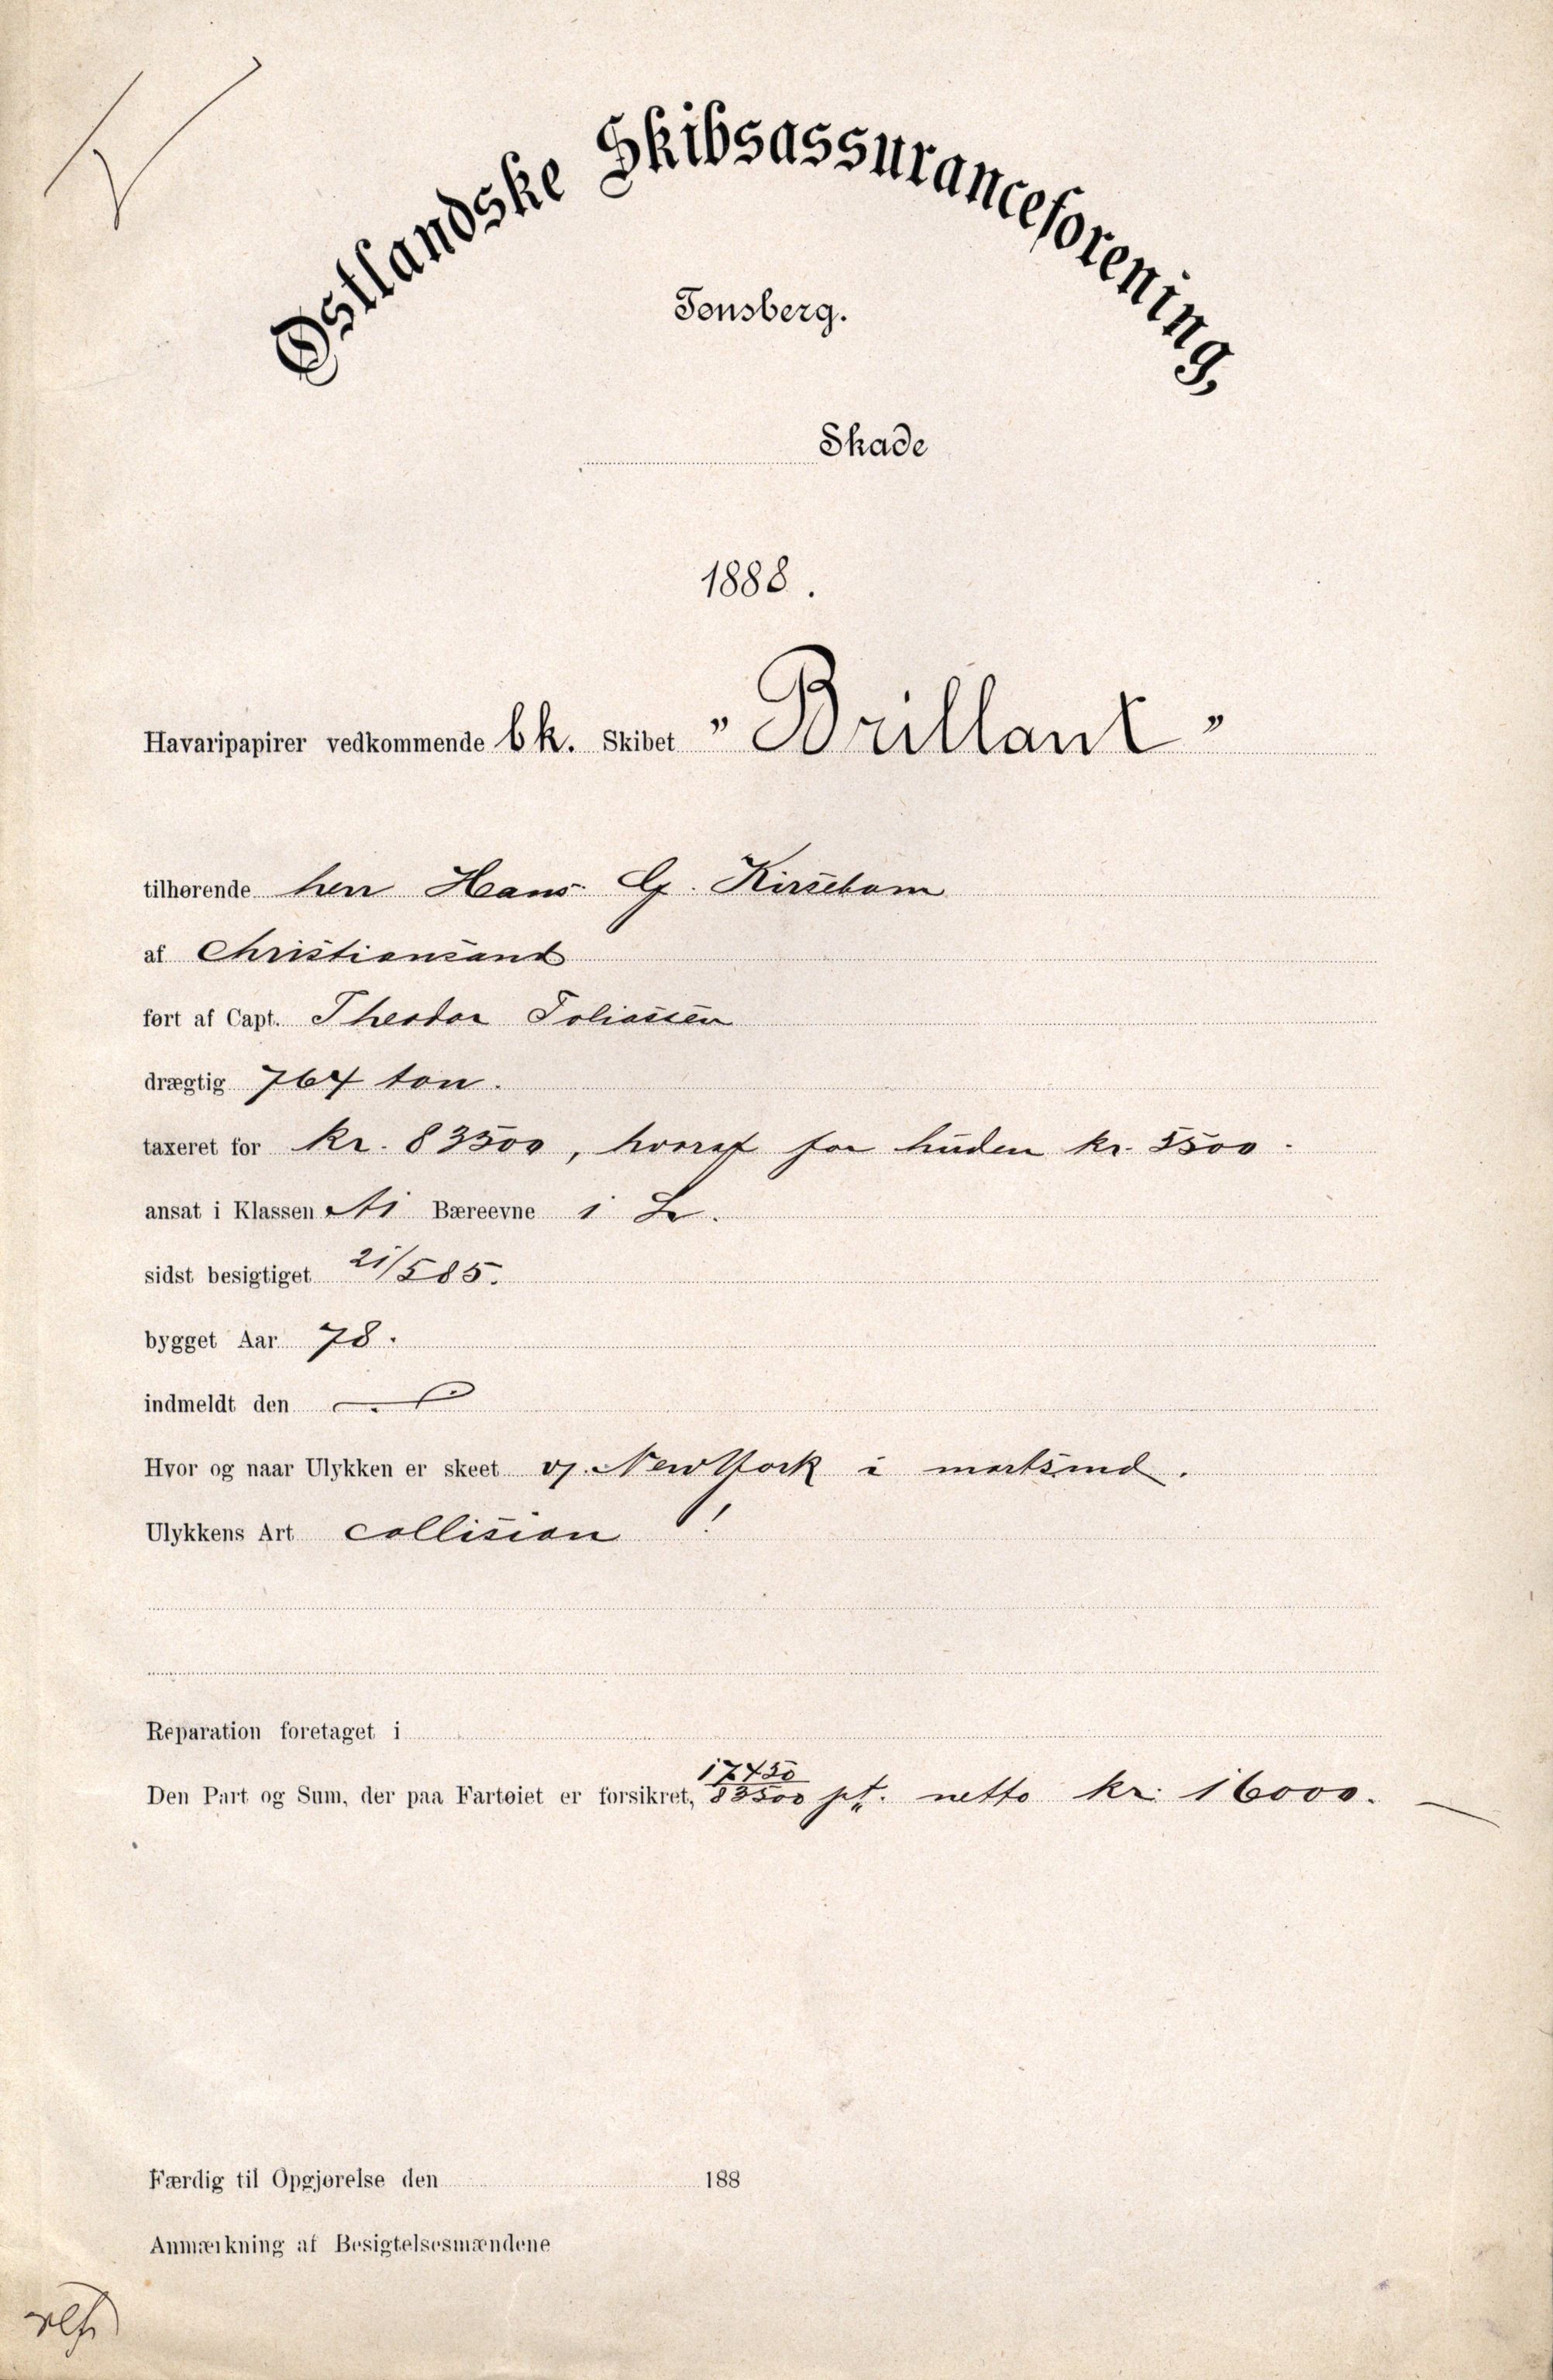 Østlandske Skibsassuranceforening,
Tønsberg.
Skade
1888.
Havaripapirer vedkommende bk. Skibet "Brillant"
tilhørende herr Hans G. Kirsebom
af Christiansand
ført af Capt. Theodor Toliassen
drægtig 764 ton.
taxeret for kr. 83500, hvoraf for huden kr. 5500.
ansat i Klassen A1 Bæreevne 1
sidst besigtiget 21/5 85.
bygget Aar 78.
indmeldt den
Hvor og naar Ulykken er skeet v/. New York i martsmd.
Ulykkens Art collision!
Reparation foretaget i
Den Part og Sum, der paa Fartøiet er forsikret, 17450/83500 pt. netto kr. 16000.
Færdig til Opgjørelse den 188
Anmærkning af Besigtelsesmændene